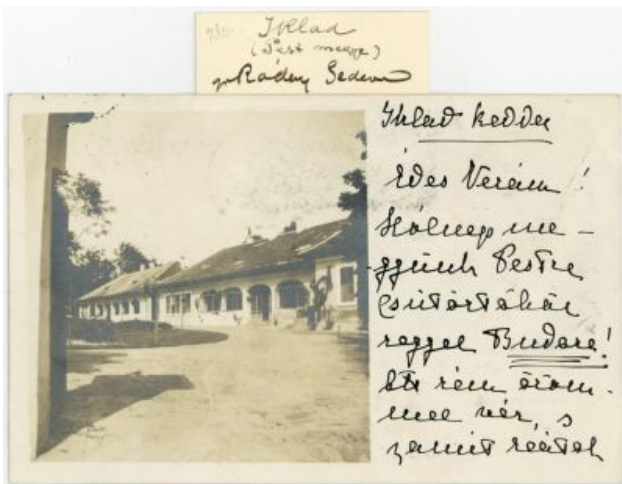 Iklad
(Pest megye)
gr Ráday Gedeon
Iklad kedden
Édes Verám!
Hólnap me-
ggünk Pestre
csütörtökön
reggel Budára!
rém öröm-
mel vár, s
számit reátok